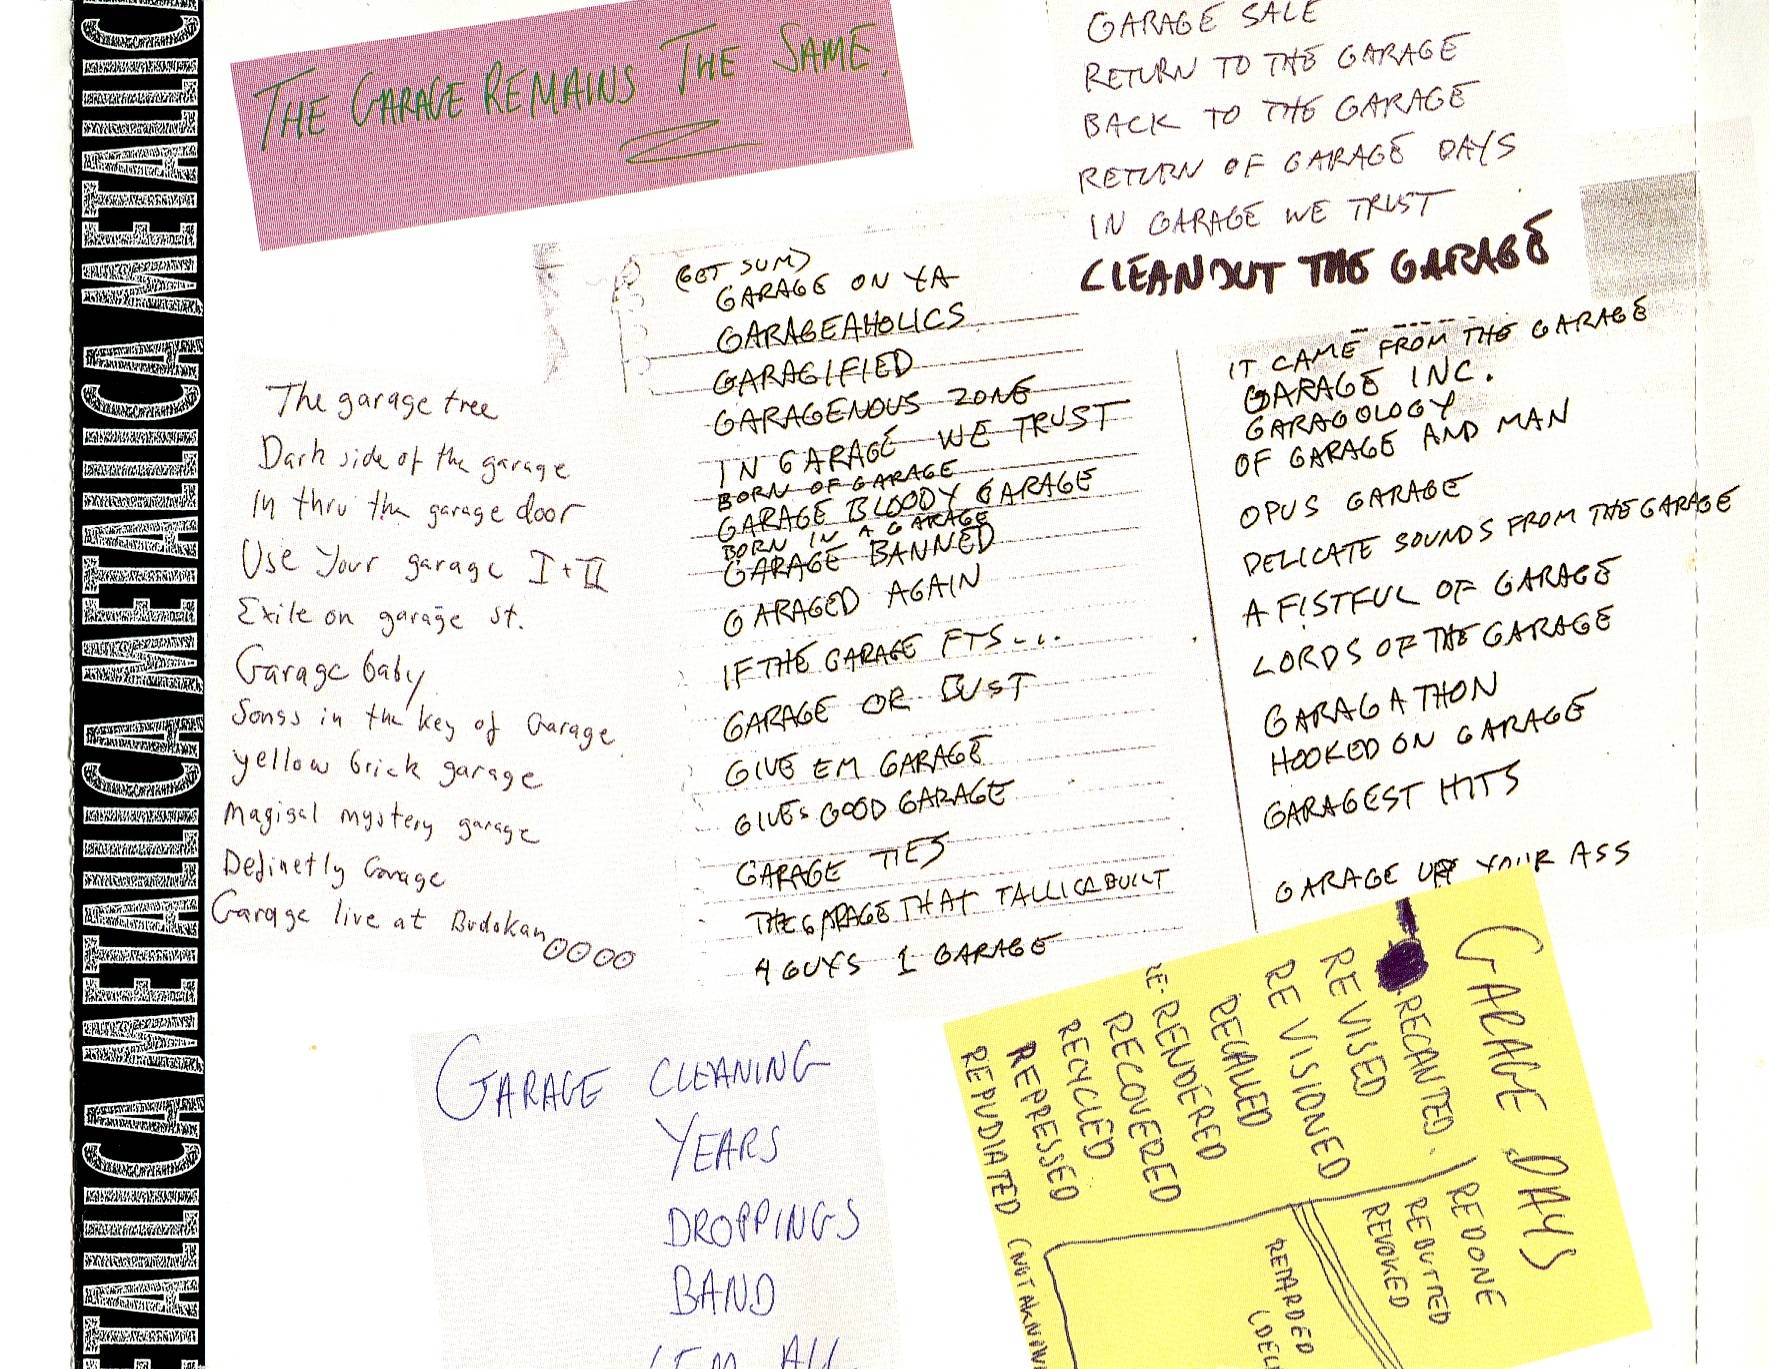 METALLICA METALLICA METALLICA METALLICA
THE GARAGE REMAINS THE SAME.
GARAGE SALE
RETURN TO THE GARAGE
BACK TO THE GARAGE
RETURN OF GARAGE DAYS
IN GARAGE WE TRUST
CLEANOUT THE GARAGE
The garage tree
Dark side of the garage
In thru the garage door
Use Your garage I + II
Exile on garage st.
Garage baby
Songs in the key of Garage
yellow brick garage
Magical mystery garage
Definetly Garage
Garage live at Budokan
(GET SUM)
GARAGE ON YA
GARAGEAHOLICS
GARAGIFIED
GARAGENOUS ZONE
IN GARAGE WE TRUST
BORN OF GARAGE
GARAGE BLOODY GARAGE
BORN IN A GARAGE
GARAGE BANNED
GARAGED AGAIN
IF THE GARAGE FTS....
GARAGE OR BUST
GIVE EM GARAGE
GIVES GOOD GARAGE
GARAGE TIES
THE GARAGE THAT TALLICA BUILT
4 GUYS 1 GARAGE
IT CAME FROM THE GARAGE
GARAGE INC.
GARAGOLOGY
OF GARAGE AND MAN
OPUS GARAGE
DELICATE SOUNDS FROM THE GARAGE
A FISTFUL OF GARAGE
LORDS OF THE GARAGE
GARAGATHON
HOOKED ON GARAGE
GARAGEST HITS
GARAGE UP YOUR ASS
GARAGE CLEANING
YEARS
DROPPINGS
BAND
'EM ALL
GARAGE DAYS
RECANTED.
REVISED
RE VISIONED
RECALLED
RE-RENDERED
RECOVERED
RECYCLED
REPRESSED
REPUDIATED (NOT AKNOW
REDONE
REDUTTED
REVOKED
RETARDED
(DEL